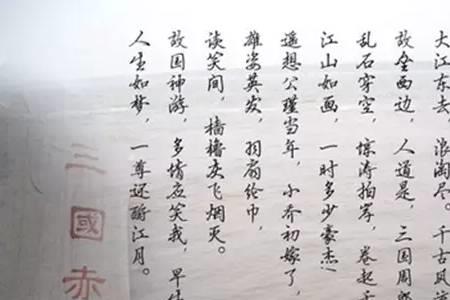 大江东去，浪淘尽。千古风流
故垒西边，人道是，三国周郎
乱石穿空，惊涛拍岸，卷起
江山如画，一时多少豪杰！
遥想公瑾当年，小乔初嫁了，
雄姿英发，羽扇纶巾，
谈笑间，樯橹灰飞烟灭。
故国神游，多情应笑我，早生
人生如梦，一尊还酹江月。
三國赤